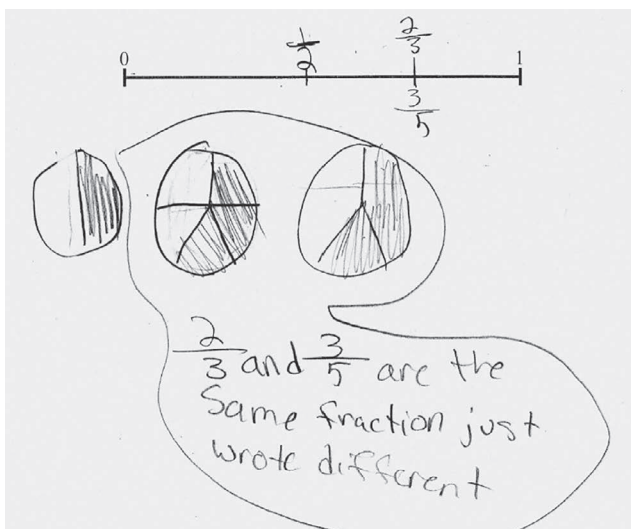 0 1/2 2/3 1
3/5
2/3 and 3/5 are the
Same fraction just
wrote different